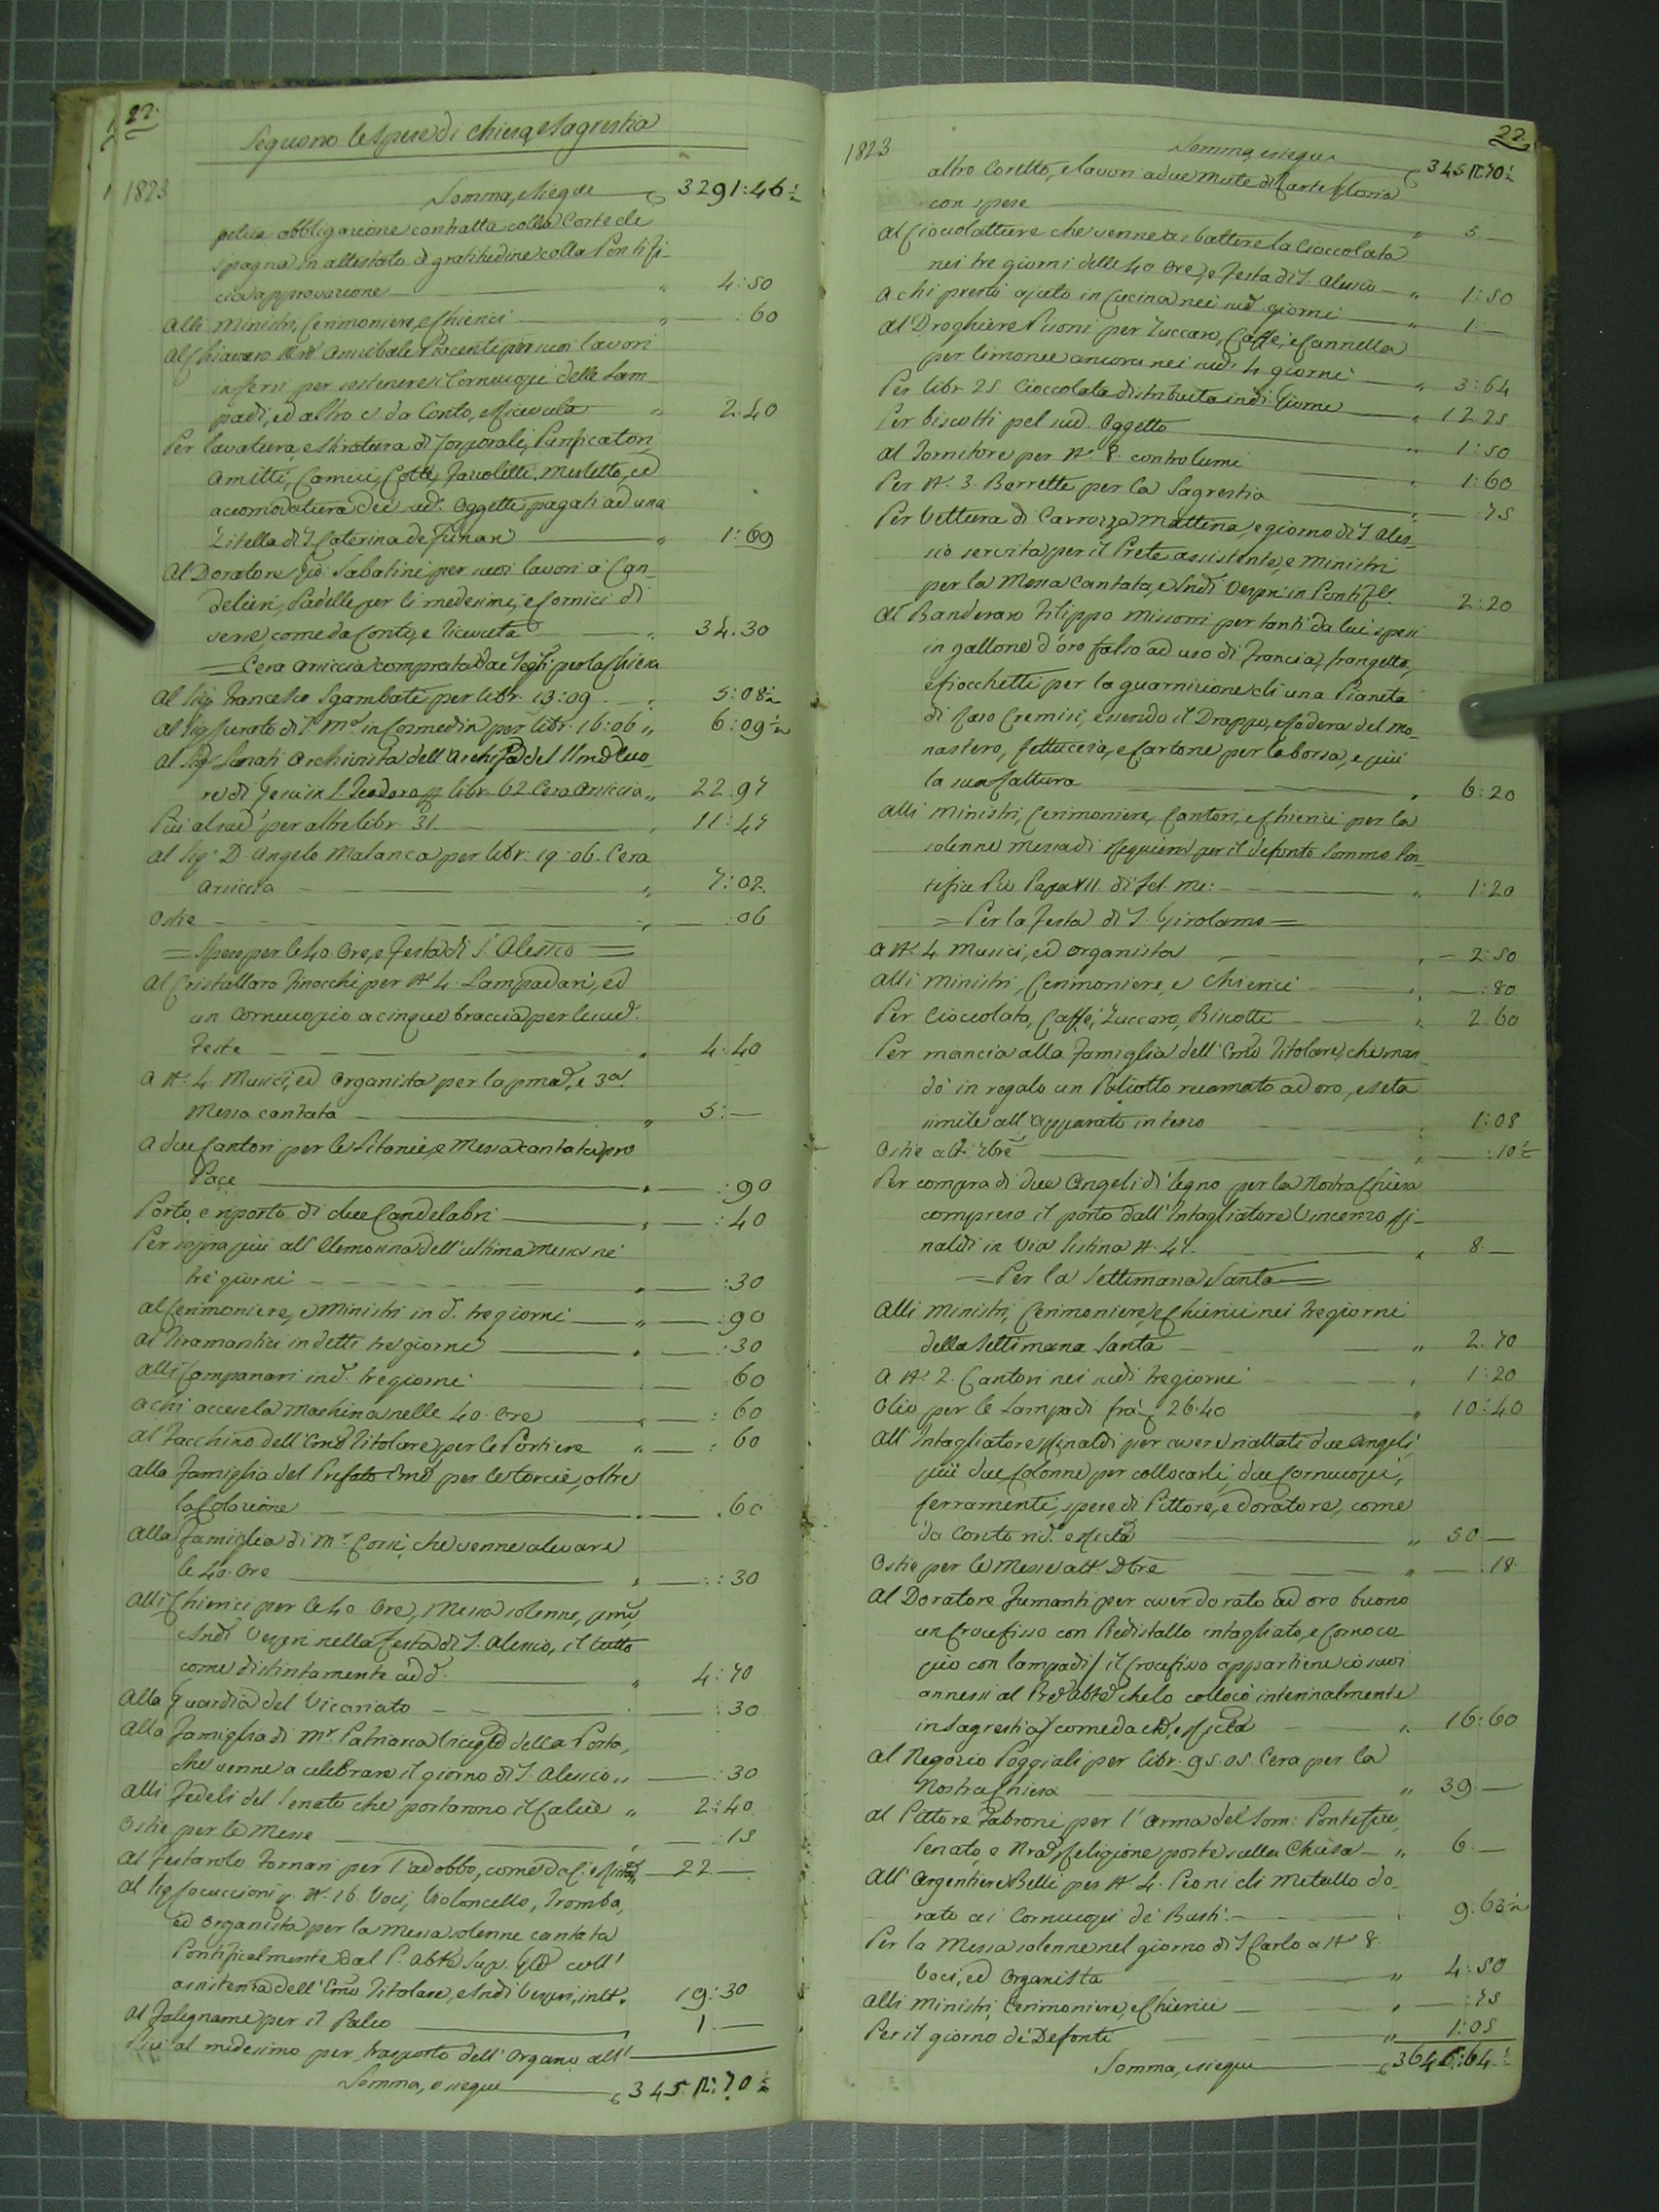 22.
Seguono le Spese di Chiesa, e Sagrestia
1823
Somma, e siegue 3291:46½
obbligazione contratta colla Corte di
Spagna in attestato di gratitudine colla Pontifi-
cia approvazione 4:50
Alli Ministri, Cerimoniere, e Chierici :60
Al Chiavaro Annibale Piacenti per suoi lavori
in ferri per sostenere i Cornucopj delle Lam-
padi, ed altro c. da Conto, e ricevuta 2:40
Per lavatura, e stiratura di Corporali, Purificatori,
Amitti, Camici, Cotte, Fazzoletti, Merletto, ed
accomodatura dei sud. Oggetti pagati ad una
Zitella di S. Caterina de Funari 1:69
Al Doratore Gio: Sabatini per suoi lavori a Can-
delieri, Padelle per li medesimi, e Cornici di
come da Conto, e ricevuta 34.30
= Cera Ariccia comprata dai per la Chiesa
Al Sig. Francesco Sgambati per libr. 13:09 5:08½
Al Sig. Curato di S. Mª in Cosmedin per libr. 16:06 6:09½
Al Sig. Archivista dell'
re di Gesù in S. Teodoro libr. 62 Cera Ariccia 22.94
Più al sud. per altre libr. 31 11:47
Al Sig. D. Angelo Malanca per libr. 19:06. Cera
Ariccia 7:02
Ostie :06
= Spese per le 40 Ore, e Festa di S. Alessio =
Al Cristallaro Finocchi per Nº 4. Lampadari, ed
un Cornucopio a cinque braccia per le sud.
Feste 4:40
A Nº 4. Musici, ed Organista per la pma, e 3ª
Messa cantata 5:—
A due Cantori per le Litanie, e Messa cantata pro
Pace :90
Porto, e riporto di due Candelabri :40
Per sopra più all'Elemosina dell'ultima Messa ne'
tre giorni :30
Al Cerimoniere, e Ministri in d. tre giorni :90
Al Tiramantici in detti tre giorni :30
Alli Campanari in d. tre giorni 60
A chi accese la Machina nelle 40. Ore :60
Al Facchino dell'Emo Titolare per le Portiere :60
Alla Famiglia del Prefato Emo per le torcie, oltre
la Colazione .60
Alla Famiglia di Mr. Corsi, che venne a levare
le 40. Ore :30
Alli Chierici per le 40 Ore, Messa solenne, pmi,
e Sndi Vesperi nella Festa di S. Alessio, il tutto
come distintamente 4:70
Alla Guardia del Vicariato :30
Alla Famiglia di Mr. Patriarca della Porta,
che venne a celebrare il giorno di S. Alessio :30
Alli Fedeli del Senato che portarono il Calice 2:40
Ostie per le Messe :15
Al Festarolo Fornari per l'adobbo, come da C. e 22 —
Al Sig. Nº 16 Voci, Violoncello, Tromba,
ed Organista per la Messa solenne cantata
Pontificalmente dal P. Abte coll'
assistenza dell'Emo Titolare, e Sndi Vesperi, 19:30
Al Falegname per il Palco 1.—
Più al medesimo per trasporto dell'Organo all'
Somma, e siegue 70½
22
1823
Somma, e siegue 70½
altro Coretto, e lavori a due Mute di Carte Gloria
con spese 5.—
Al Cioccolattiere che venne a sbattere la Cioccolata
nei tre giorni delle 40 Ore, e Festa di S. Alessio 1:50
A chi prestò ajuto in Cucina nei sud. giorni 1:—
Al Droghiere per Zuccaro, Caffè, e Cannella
per limonee ancora nei sud. 4 giorni 3:64
Per libr. 25. Cioccolata distribuita in di. Giorni 12.25
Per biscotti pel sud. Oggetto 1:50
Al Tornitore per Nº 8. controlumi 1:60
Per Nº 3. Berrette per la Sagrestia :75
Per Vettura di Carrozza mattina, e giorno di S. Ales-
sio servita per il Prete assistente, e Ministri
per la Messa Cantata, e Sndi Vespri in Pontifle 2:20
Al Banderaro Filippo Missorri per tanti da lui spesi
in gallone d'oro falso ad uso di Francia, frangetta,
e fiocchetti per la guarnizione di una Pianeta
di Raso Cremisi, essendo il Drappo, e fodera del mo-
nastero, fettuccia, e Cartone per la borsa, e più
la sua fattura 6:20
Alli Ministri, Cerimoniere, Cantori, e Chierici per la
solenne Messa di Requiem per il defonto Sommo Pon-
tefice Pio Papa VII. di Fel. me: 1:20
= Per la Festa di S. Girolamo =
A Nº 4. Musici, ed Organista 2:50
Alli Ministri, Cerimoniere, e Chierici :80
Per Cioccolata, Caffè, Zuccaro, Biscotti 2.60
Per mancia alla Famiglia dell'Emo Titolare, che man-
dò in regalo un Paliotto ricamato ad oro, e seta
simile all'Apparato in terzo 1:08
Ostie :10½
Per compra di due Angeli di legno per la Nostra Chiesa
compreso il porto dall'Intagliatore Vincenzo Ri-
naldi in Via Sistina Nº 47. 8.—
= Per la Settimana Santa =
Alli Ministri, Cerimoniere, e Chierici nei tre giorni
della Settimana Santa 2.70
A Nº 2. Cantori nei sudi tre giorni 1:20
Olio per le Lampadi 26.40 10:40
All'Intagliatore Rinaldi per avere riattati due Angeli,
più due Colonne per collocarli, due Cornucopj,
ferramenti, spese di Pittore, e doratore, come
da Conto 50—
Ostie per le Messe a tt. Dbre :18
Al Doratore Fumanti per aver dorato ad oro buono
un Crocefisso con Piedistallo intagliato, e Cornoco-
pio con lampadi / il Crocefisso appartiene co' suoi
annessi al che lo collocò interinalmente
in Sagrestia / come da Cto, e Ricta 16:60
Al Negozio Poggiali per libr. 95.05. Cera per la
Nostra Chiesa 39.—
Al Pittore Fabroni per l'Arma del Som: Pontefice,
Senato, e Nra Religione poste sulla Chiesa 6.—
All'Argentiere Belli per Nº 4. Pioni di Metallo do-
rato ai Cornucopj de' Busti 9:63½
Per la Messa solenne nel giorno di S. Carlo a Nº 8.
Voci, ed Organista 4:50
Alli Ministri, Cerimoniere, e Chierici :75
Per il giorno de' Defonti 1:05
Somma, e siegue :64½